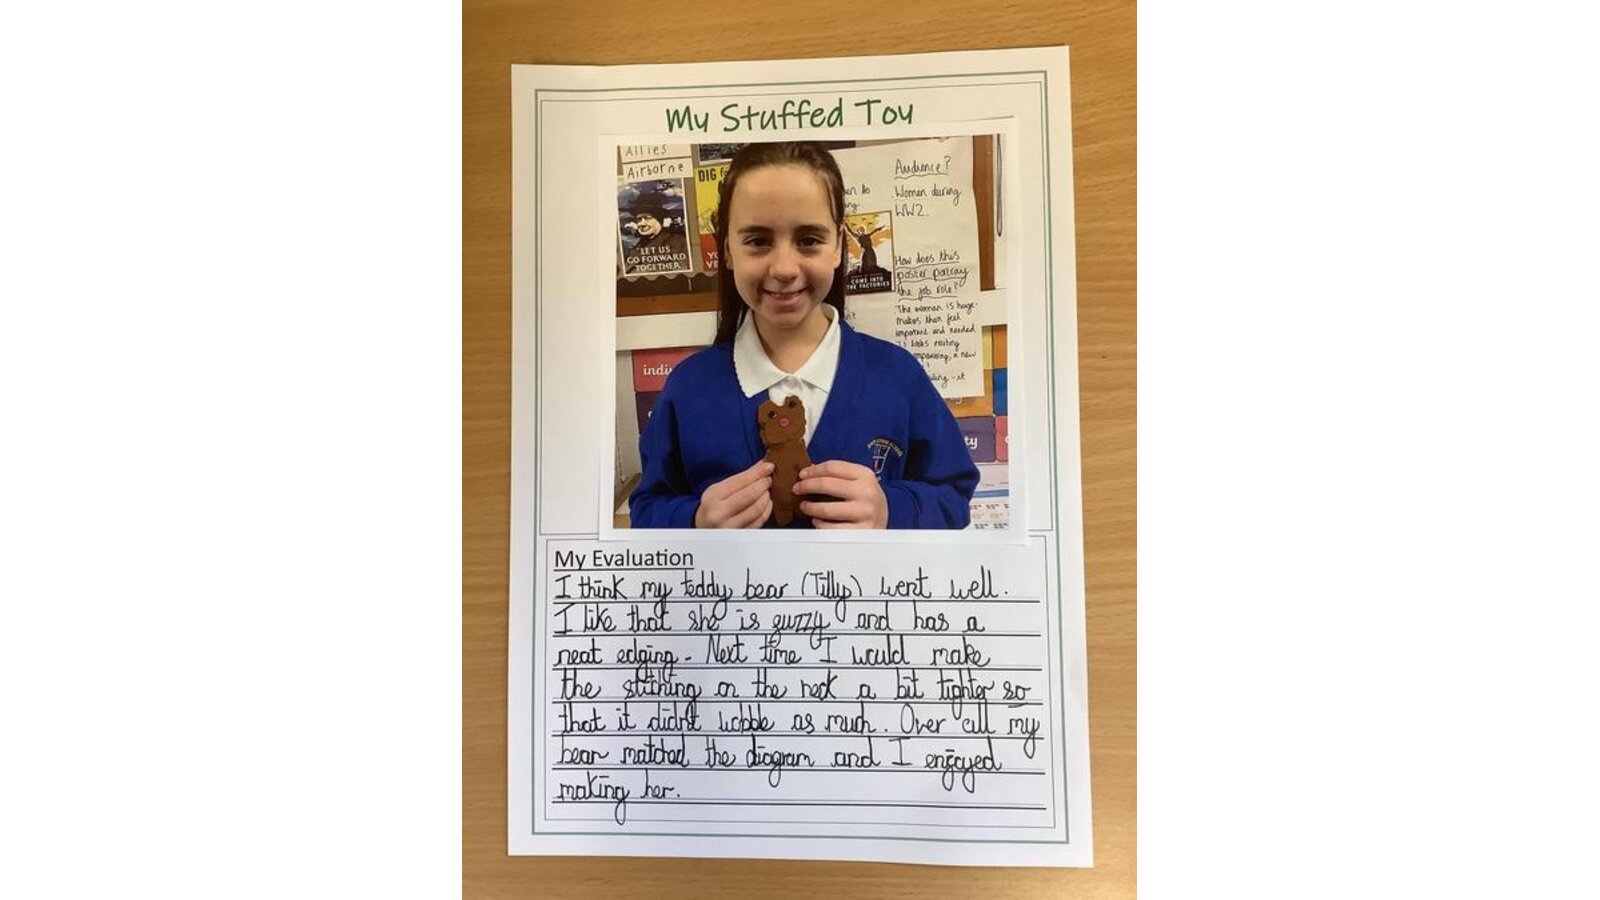 My Stuffed Toy
Allies
Airborne
DIG
LET US
GO FORWARD
TOGETHER
YO
VE
COME INTO
THE FACTORIES
Audience?
Women during
WW2.
How does this
poster portray
the job role?
The woman is huge-
makes them feel
important and needed
It looks
empowering, a new
- it
indi
ty
My Evaluation
I think my teddy bear (Tilly) went well.
I like that she is fuzzy and has a
neat edging. Next time I would make
the stitching on the neck a bit tighter so
that it didn't wobble as much. Over all my
bear matched the diagram and I enjoyed
making her.